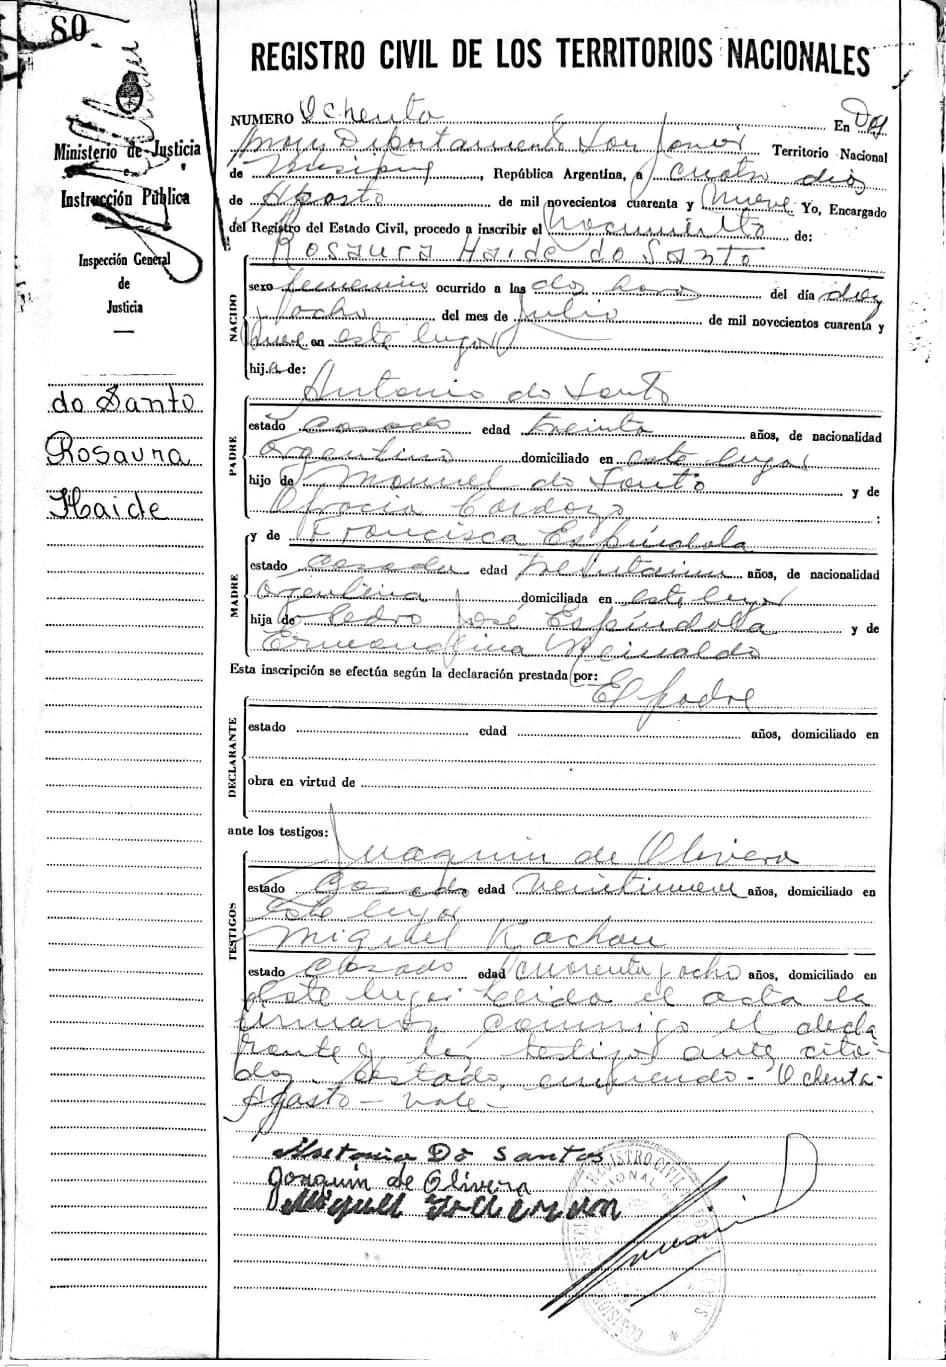 80
Ministerio de Justicia
e
Instrucción Pública
Inspección General
de
Justicia
do Santo
Rosaura
Haide
REGISTRO CIVIL DE LOS TERRITORIOS NACIONALES
NUMERO Ochenta En Dos
Departamento San Javier Territorio Nacional
de Misiones, República Argentina, a cuatro dias
de Agosto de mil novecientos cuarenta y Nueve Yo, Encargado
del Registro del Estado Civil, procedo a inscribir el nacimiento de:
Rosaura Haide do Santo
NACIDO
sexo femenino ocurrido a las dos horas del día diez
y ocho del mes de Julio de mil novecientos cuarenta y
nueve en este lugar
hija de:
Antonio do Santo
PADRE
estado casado edad treinta años, de nacionalidad
Argentino domiciliado en este lugar
hijo de Manuel do Santo y de
Cardozo :
y de Francisca Espíndola
MADRE
estado casada edad años, de nacionalidad
Argentina domiciliada en este lugar
hija de Pedro José Espíndola y de
Ermandina Reinaldo
Esta inscripción se efectúa según la declaración prestada por:
El padre
DECLARANTE
estado edad años, domiciliado en
obra en virtud de
ante los testigos:
Juaquin de Olivera
TESTIGOS
estado Casado edad veintinueve años, domiciliado en
Este lugar
Miguel Kachan
estado Casado edad cuarenta y ocho años, domiciliado en
Este lugar Leida el acta la
firmaron conmigo el decla
rante y los testigos ante cita-
dos Estado, enmiendo - Ochenta-
Agosto - vale -
Do Santos
Joaquin de Olivera
Miguel
REGISTRO CIVIL